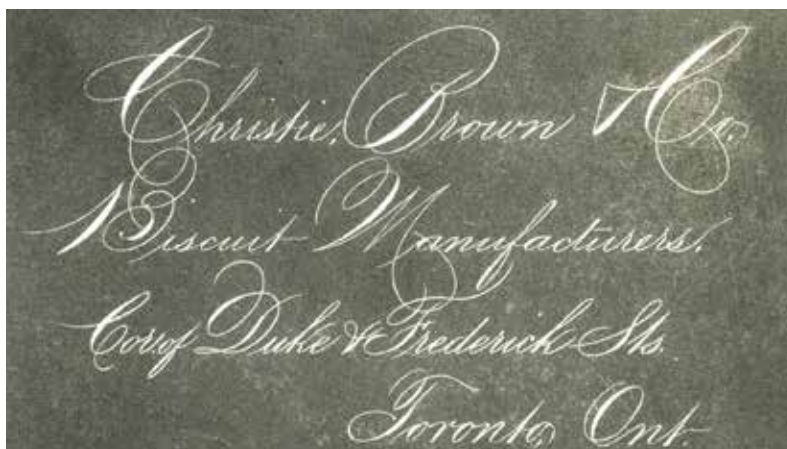 Christie, Brown & Co.
Biscuit Manufacturers.
Cor. of Duke & Frederick Sts.
Toronto, Ont.